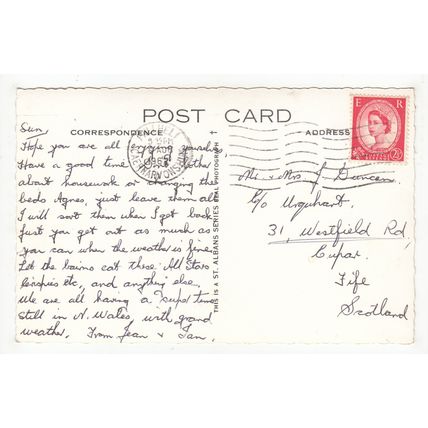 POST CARD
CORRESPONDENCE
ADDRESS
E R
2½D
CAERNARVONSHIRE
THIS IS A ST. ALBANS SERIES REAL PHOTOGRAPH
Sun,
Hope you are all yourselves
Have a good time bother
about housework or changing the
beds Agnes, just leave them all
I will sort them when I get back
Just you get out as much as
you can when the weather is fine.
Let the bairns eat those All Stars
Crispies etc, and anything else.
We are all having a super time
still in N. Wales, with grand
weather. From Jean & Ian.
Mr. & Mrs J. Duncan,
c/o Urquhart,
31, Westfield Rd,
Cupar,
Fife,
Scotland